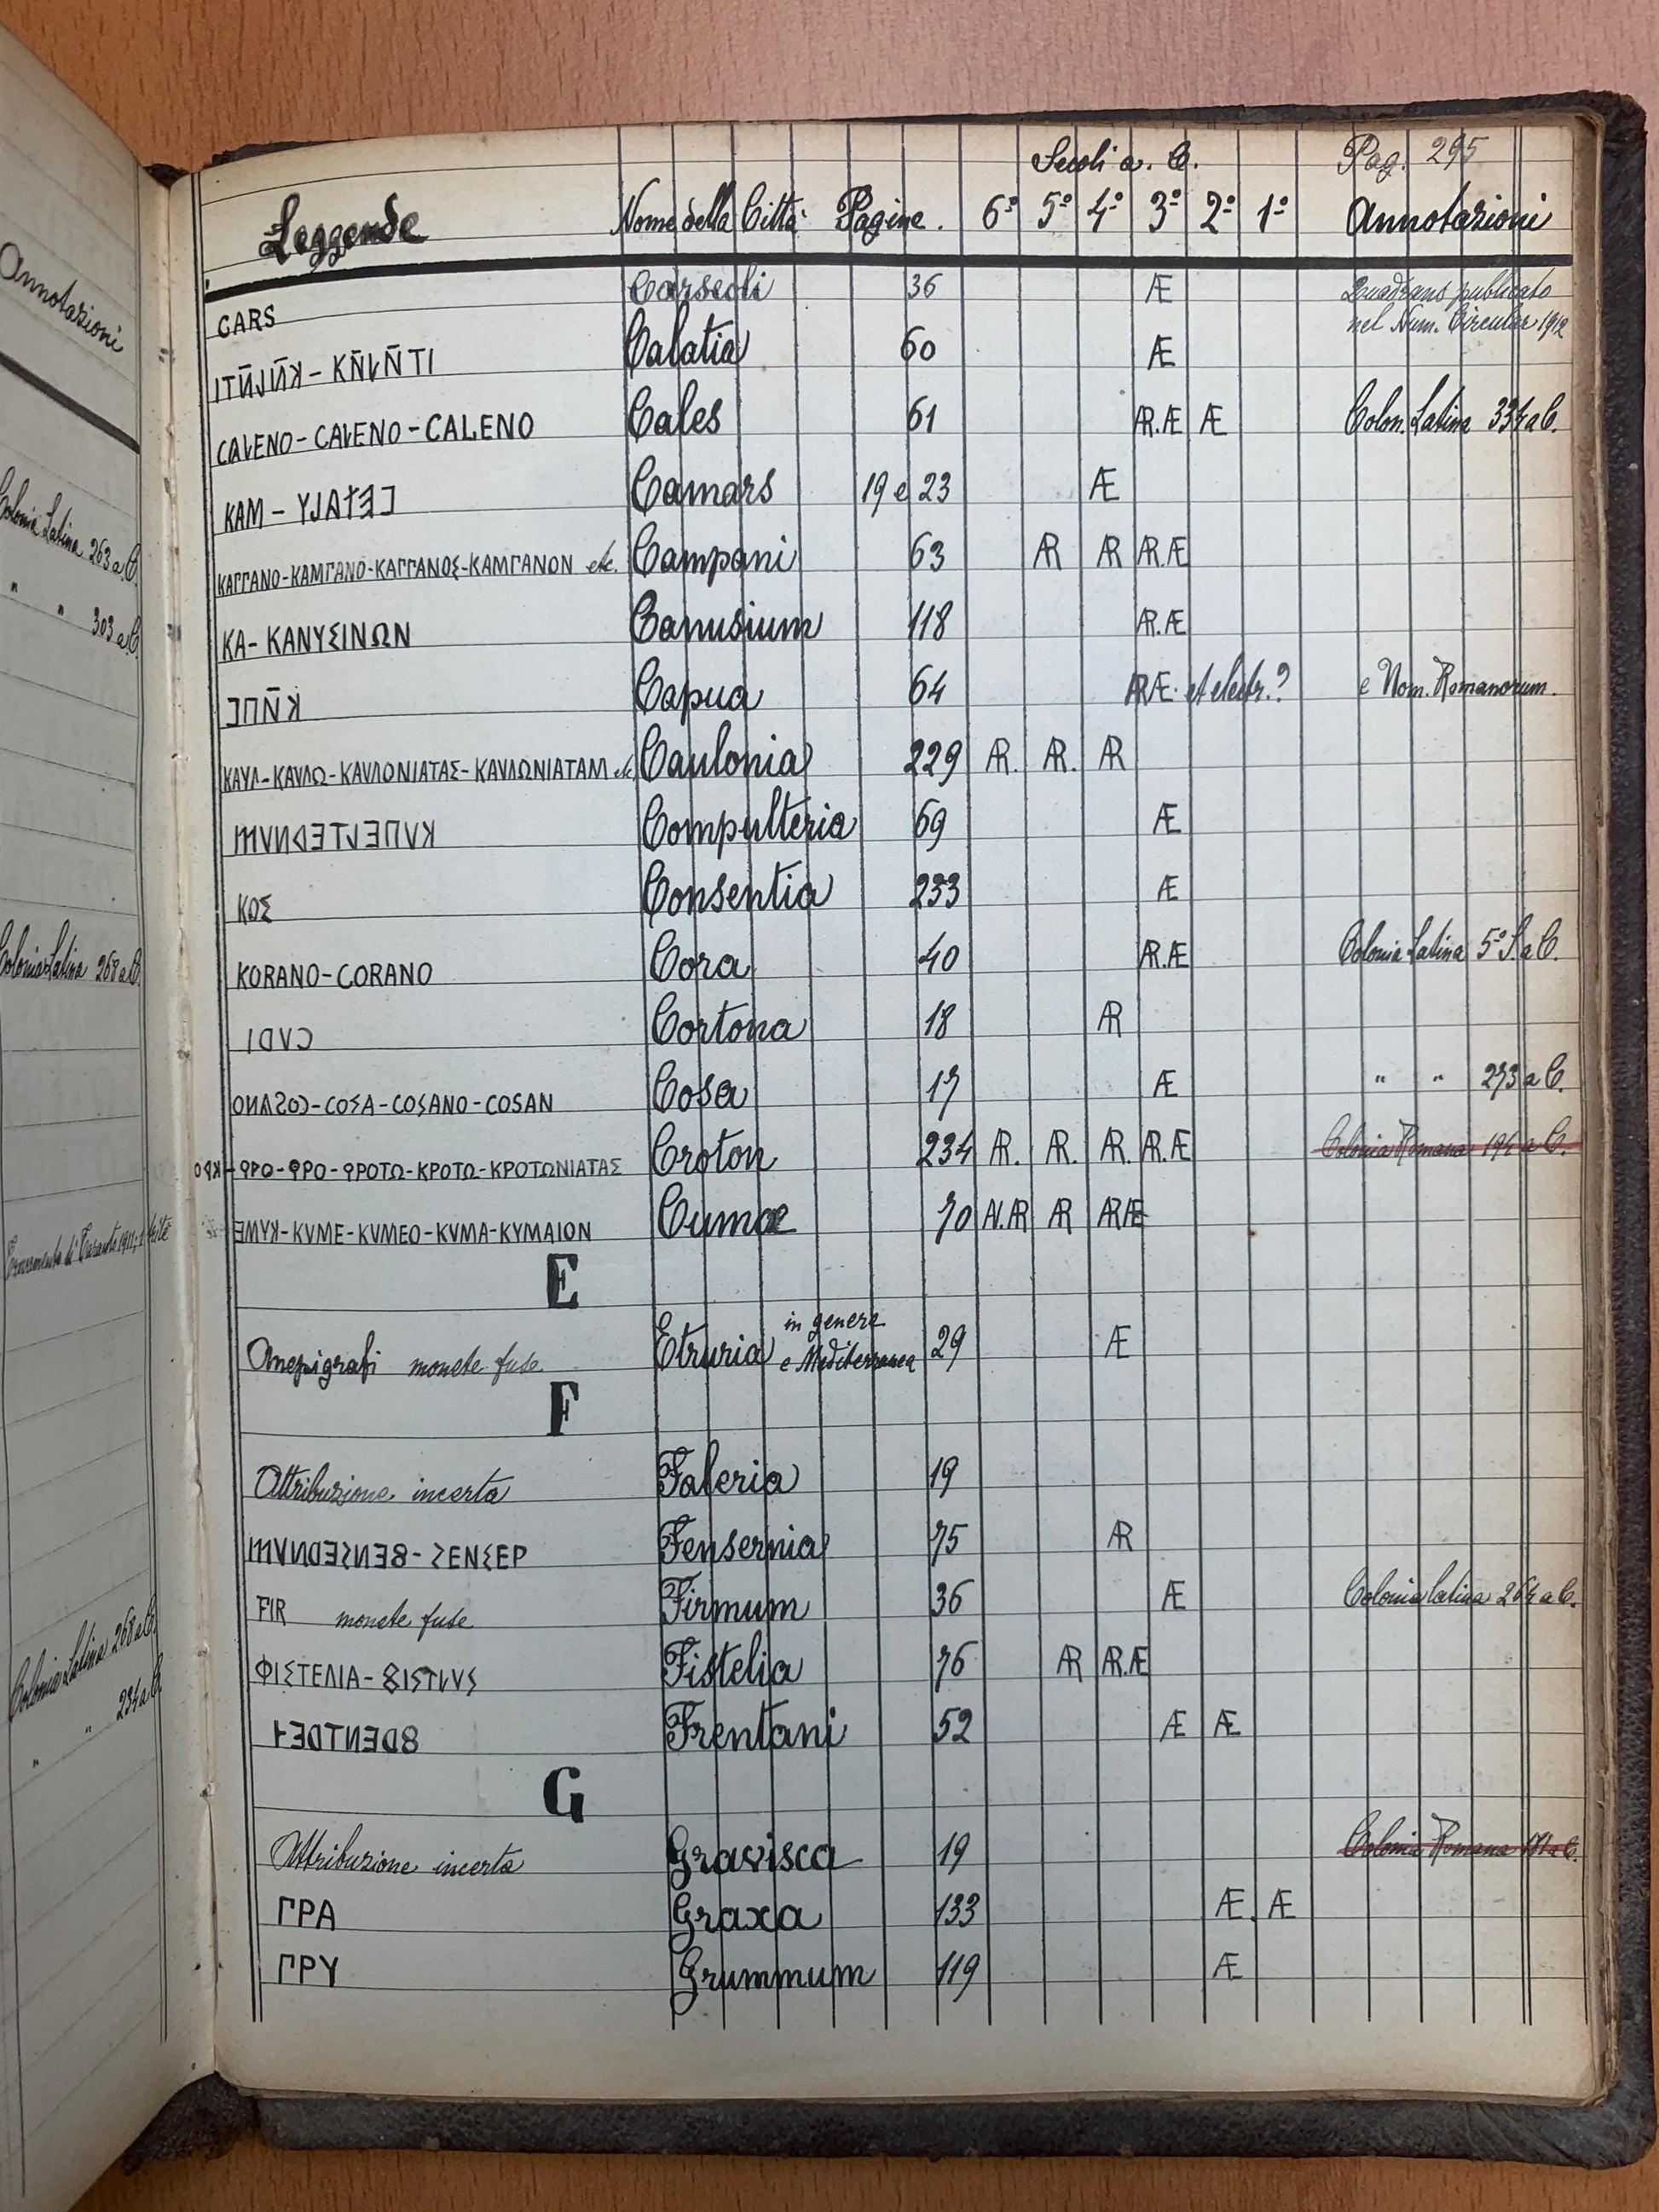 Annotazioni
Colonia Latina 263 a.C.
" " 303 a.C.
Colonia Latina 268 a.C.
Colonia Latina 268 a.C.
"
Secoli a. C. Pag. 295
Leggende Nome della Città Pagine. 6º 5º 4º 3º 2º 1º Annotazioni
CARS Carseoli 36 Æ Quadrans publicato
nel Num. Circular 1912
Calatia 60 Æ
CALENO - CALENO - CALENO Cales 61 AR.Æ Æ Colon. Latina 334 a C.
KAM - Camars 19 e 23 Æ
ΚΑΓΓΑΝΟ-ΚΑΜΓΑΝΟ-ΚΑΓΓΑΝΟΣ-ΚΑΜΓΑΝΟΝ etc. Campani 63 AR AR AR.Æ
ΚΑ- ΚΑΝΥΣΙΝΩΝ Canusium 118 AR.Æ
Capua 64 AR.Æ. et electr.? e Nom. Romanorum.
ΚΑΥΛ-ΚΑΥΛΩ-ΚΑΥΛΟΝΙΑΤΑΣ-ΚΑΥΛΩΝΙΑΤΑΜ etc. Caulonia 229 AR. AR. AR
Compulteria 69 Æ
ΚΩΣ Consentia 233 Æ
KORANO-CORANO Cora 40 AR.Æ Colonia Latina 5º S. a C.
Cortona 18 AR
COSANO-COSA-COSANO-COSAN Cosa 17 Æ " " 273 a C.
ϘΡΟ-ϘΡΟ-ϘΡΟΤΩ-ΚΡΟΤΩ-ΚΡΟΤΩΝΙΑΤΑΣ Croton 234 AR. AR. AR. AR.Æ Colonia Romana 194 a C.
KYME-KVME-KVMEO-KVMA-KYMAION Cumae 70 N.AR AR AR.Æ
E
Anepigrafi monete fuse Etruria in genere e Mediterranea 29 Æ
F
Attribuzione incerta Faleria 19
Fensernia 75 AR
FIR monete fuse Firmum 36 Æ Colonia latina 264 a C.
ΦΙΣΤΕΛΙΑ-8ISTLVS Fistelia 76 AR AR.Æ
Frentani 52 Æ Æ
G
Attribuzione incerta Gravisca 19 Colonia Romana 181 a C.
ΓΡΑ Graxa 133 Æ. Æ
ΓΡΥ Grummum 119 Æ